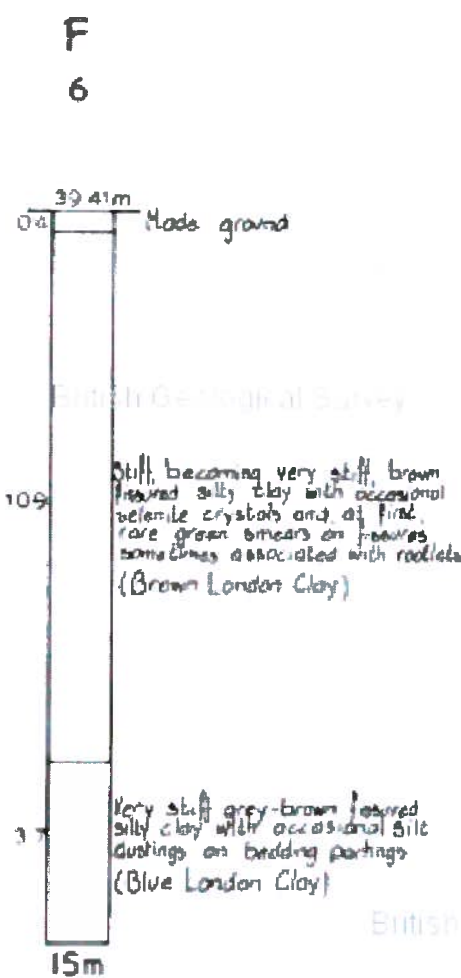 F
6
39.41m
0.4 Made ground
British Geological Survey
Stiff, becoming very stiff, brown
fissured silty clay with occasional
10.9 selenite crystals and, at first,
rare green smears on fissures
sometimes associated with rootlets
(Brown London Clay)
Very stiff grey-brown fissured
3.7 silty clay with occasional silt
dustings on bedding partings
(Blue London Clay)
British
15m